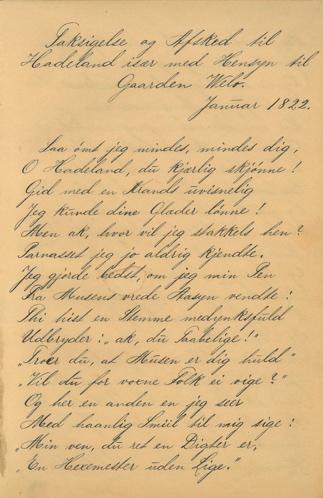 Taksigelse og Afsked til
Hadeland især med Hensyn til
Gaarden Welo.
Januar 1822.
Saa ømt jeg mindes, mindes dig,
O Hadeland, du kjærlig skjønne!
Gid med en Krands uvisnelig
Jeg kunde dine Glæder lønne!
Men ak, hvor vil jeg stakkels hen?
Parnasset jeg jo aldrig kjendte.
Jeg gjorde bedst, om jeg min Pen
Fra Musens vrede Aasyn vendte:
Thi hist en Stemme medynksfuld
Udbryder: "ak, du Taabelige!"
"Troer du, at Musen er dig huld"
"Vil du for voxne Folk ei vige?"
Og her en anden en jeg seer
Med haanlig Smiil til mig sige:
"Min ven, du ret en Digter er,
"En Hexemester uden Lige."